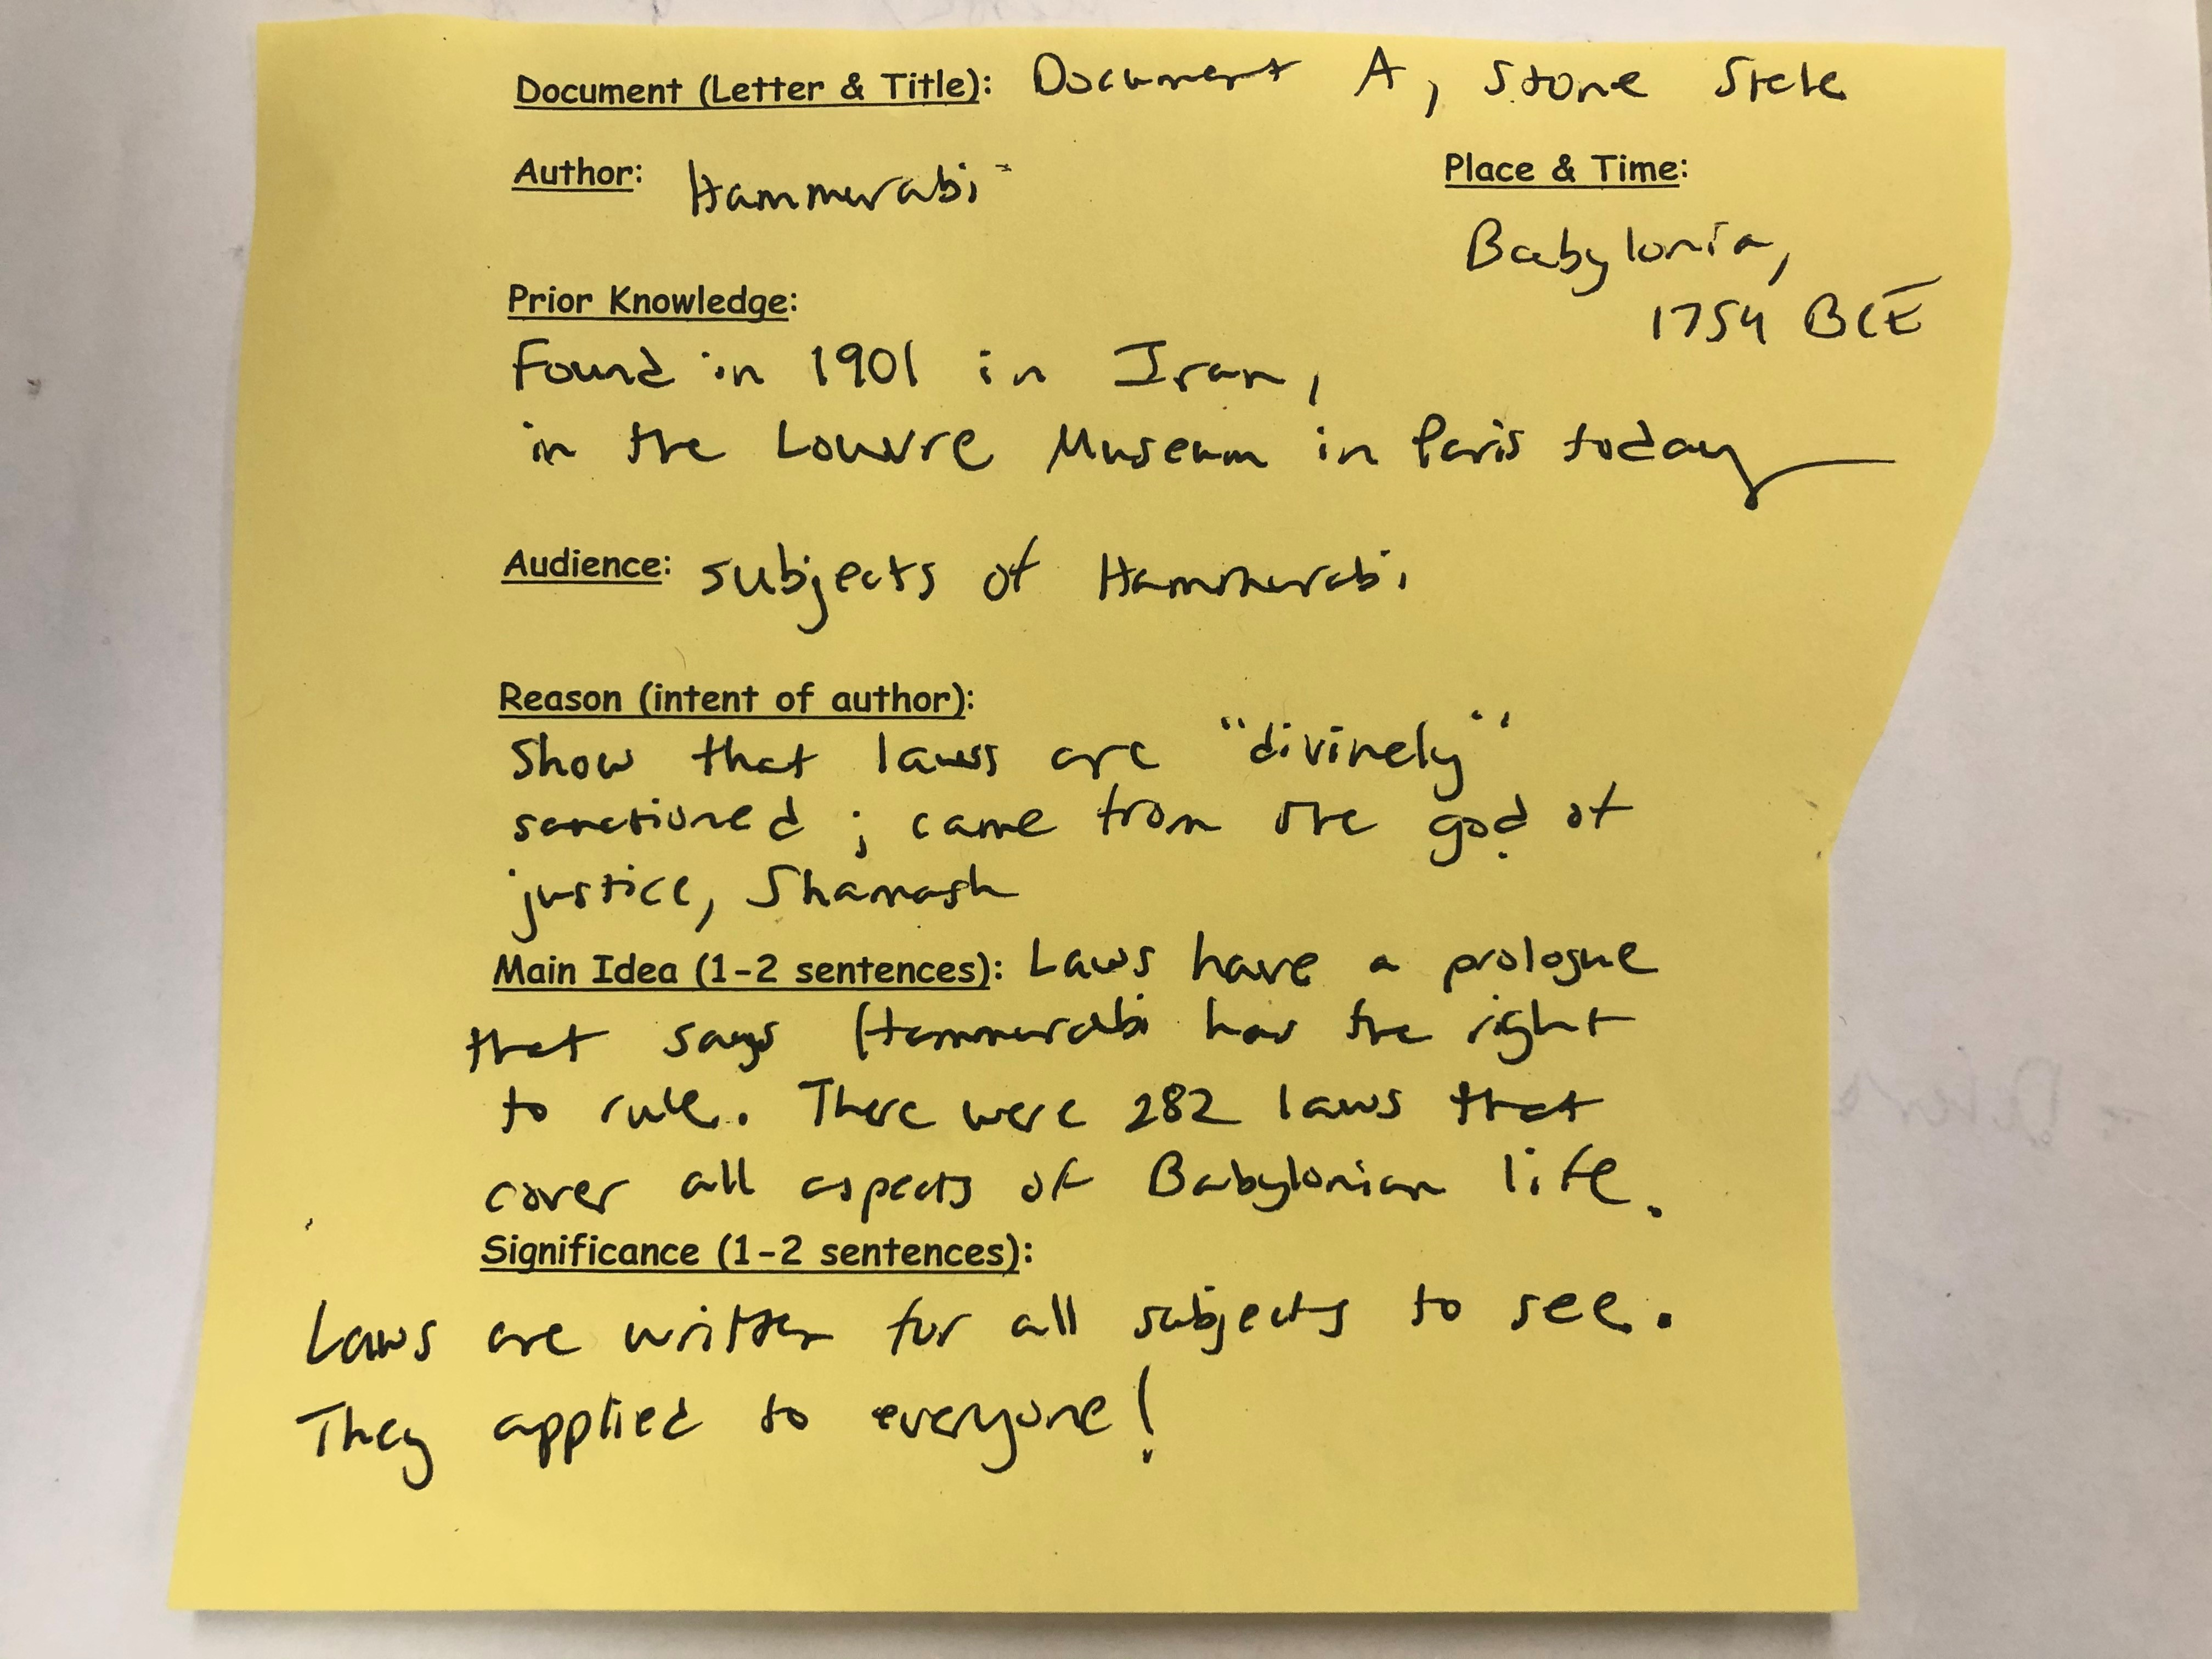 Document (Letter & Title): Document A, Stone Stele
Author: Hammurabi
Place & Time:
Babylonia,
1754 BCE
Prior Knowledge:
Found in 1901 in Iran,
in the Louvre Museum in Paris today
Audience: subjects of Hammurabi
Reason (intent of author):
Show that laws are "divinely"
sanctioned; came from the god of
justice, Shamash
Main Idea (1-2 sentences): Laws have a prologue
that says Hammurabi has the right
to rule. There were 282 laws that
cover all aspects of Babylonian life.
Significance (1-2 sentences):
Laws are written for all subjects to see.
They applied to everyone!